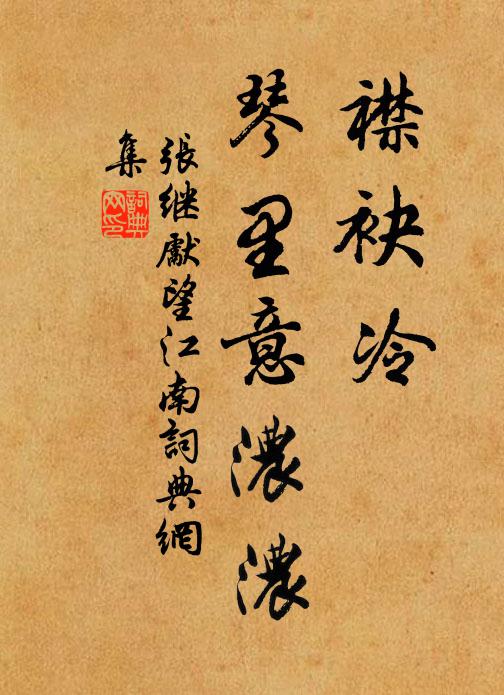 襟袂冷
琴里意濃濃
張继獻望江南詞典網
集
詞典
网印